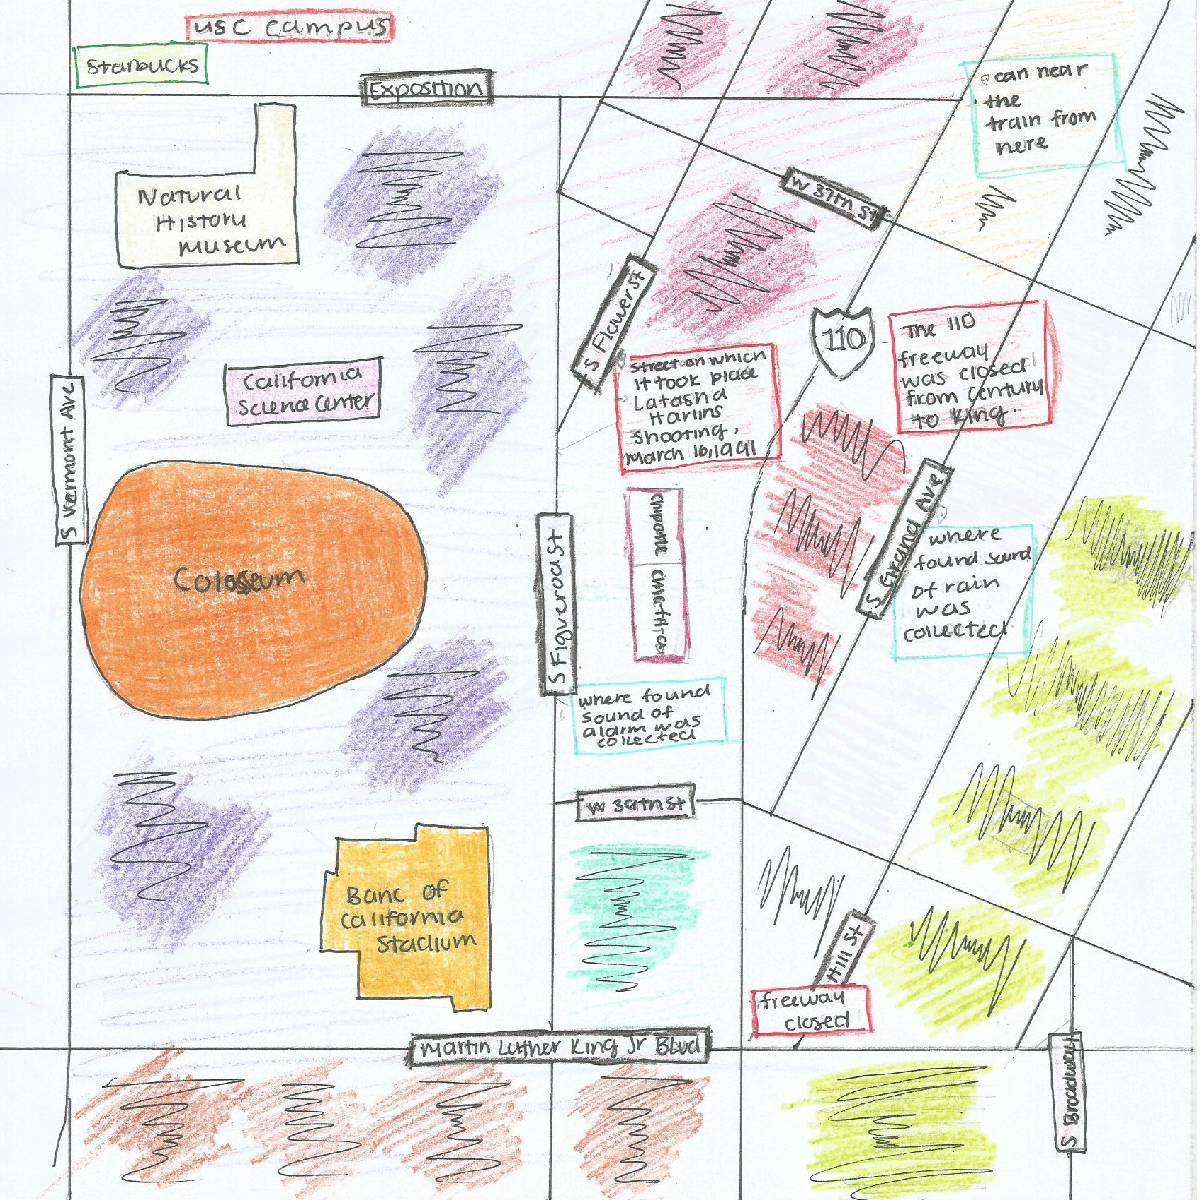 USC Campus
Starbucks
Exposition
can hear
the
train from
here
Natural
History
Museum
W 37th St
S Flower St
110
The 110
freeway
was closed
from Century
to King.
Street on which
it took place
Latasha
Harlins
Shooting,
March 16, 1991
California
Science Center
S Vermont Ave
Coloseum
S Figueroa St
Chipotle
Chick-fil-a
S Grand Ave
where
found sound
of rain
was
collected
where found
sound of
alarm was
collected
W 39th St
Banc of
California
Stadium
Hill St
freeway
closed
Martin Luther King Jr Blvd
S Broadway